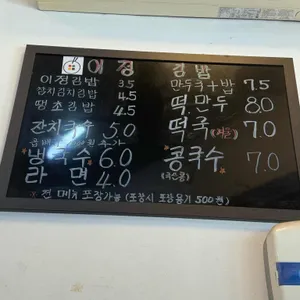 이정 김밥
이정김밥 3.5
참치김밥 4.5
땡초김밥 4.5
잔치국수 5.0
냉국수 6.0
라면 4.0
만두국+밥 7.5
떡만두 8.0
떡국 7.0
콩국수 7.0
전 메뉴 포장가능 (포장시 포장용기 500원)